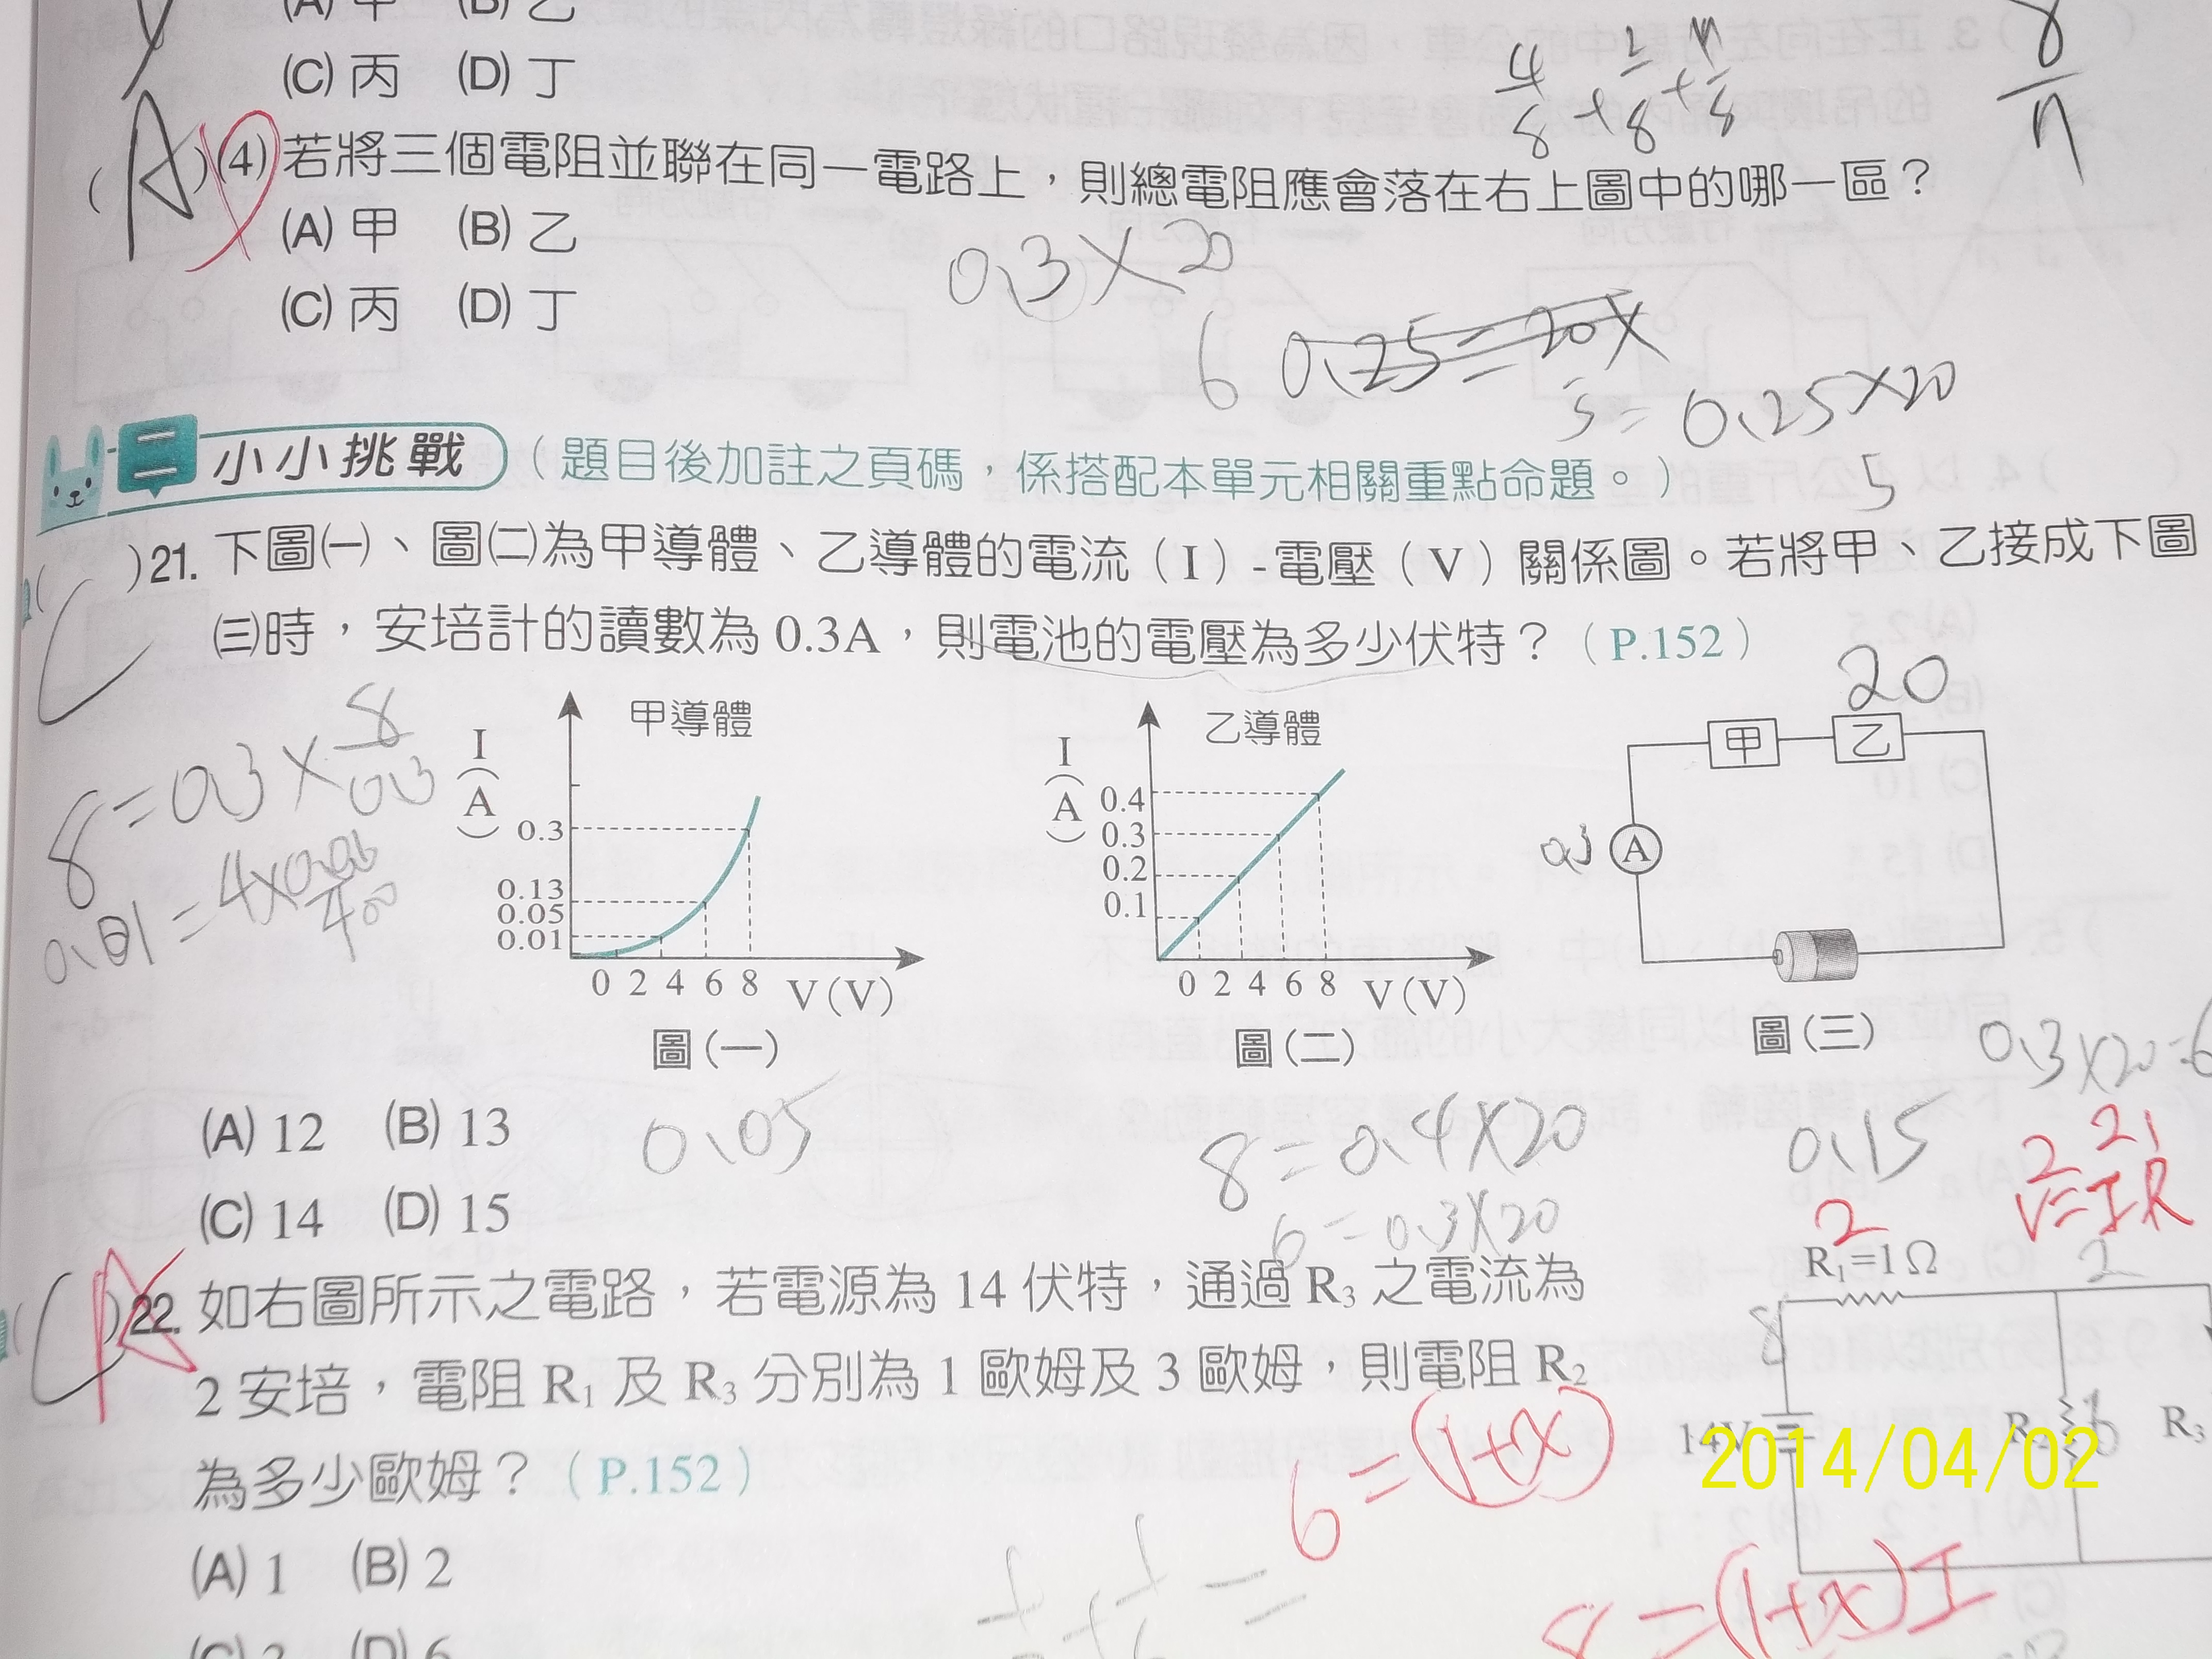 (A) 甲 (B) 乙
(C) 丙 (D) 丁
4/8 + 2/8 + 1/8
(A)(4) 若將三個電阻並聯在同一電路上，則總電阻應會落在右上圖中的哪一區？
(A) 甲 (B) 乙
(C) 丙 (D) 丁
0.3×20
6
0.25=20X
5=0.25×20
5
二 小小挑戰（題目後加註之頁碼，係搭配本單元相關重點命題。）
(C)21. 下圖㈠、圖㈡為甲導體、乙導體的電流（I）-電壓（V）關係圖。若將甲、乙接成下圖
㈢時，安培計的讀數為 0.3A，則電池的電壓為多少伏特？（P.152）
8=0.3×8/0.3
甲導體
I(A)
0.3
0.13
0.05
0.01
0 2 4 6 8 V(V)
圖(一)
乙導體
I(A)
0.4
0.3
0.2
0.1
0 2 4 6 8 V(V)
圖(二)
20
甲 乙
0.3 A
圖(三)
0.3×20=6
(A) 12 (B) 13
(C) 14 (D) 15
0.05
8=0.4×20
6=0.3×20
0.15
V=IR
(C)22. 如右圖所示之電路，若電源為 14 伏特，通過 R₃ 之電流為
2 安培，電阻 R₁ 及 R₃ 分別為 1 歐姆及 3 歐姆，則電阻 R₂
為多少歐姆？（P.152）
(A) 1 (B) 2
(C) 3 (D) 6
2
R₁=1Ω
2
8
14V
R₃
6=(1+x)
8=(1+x)I
2014/04/02